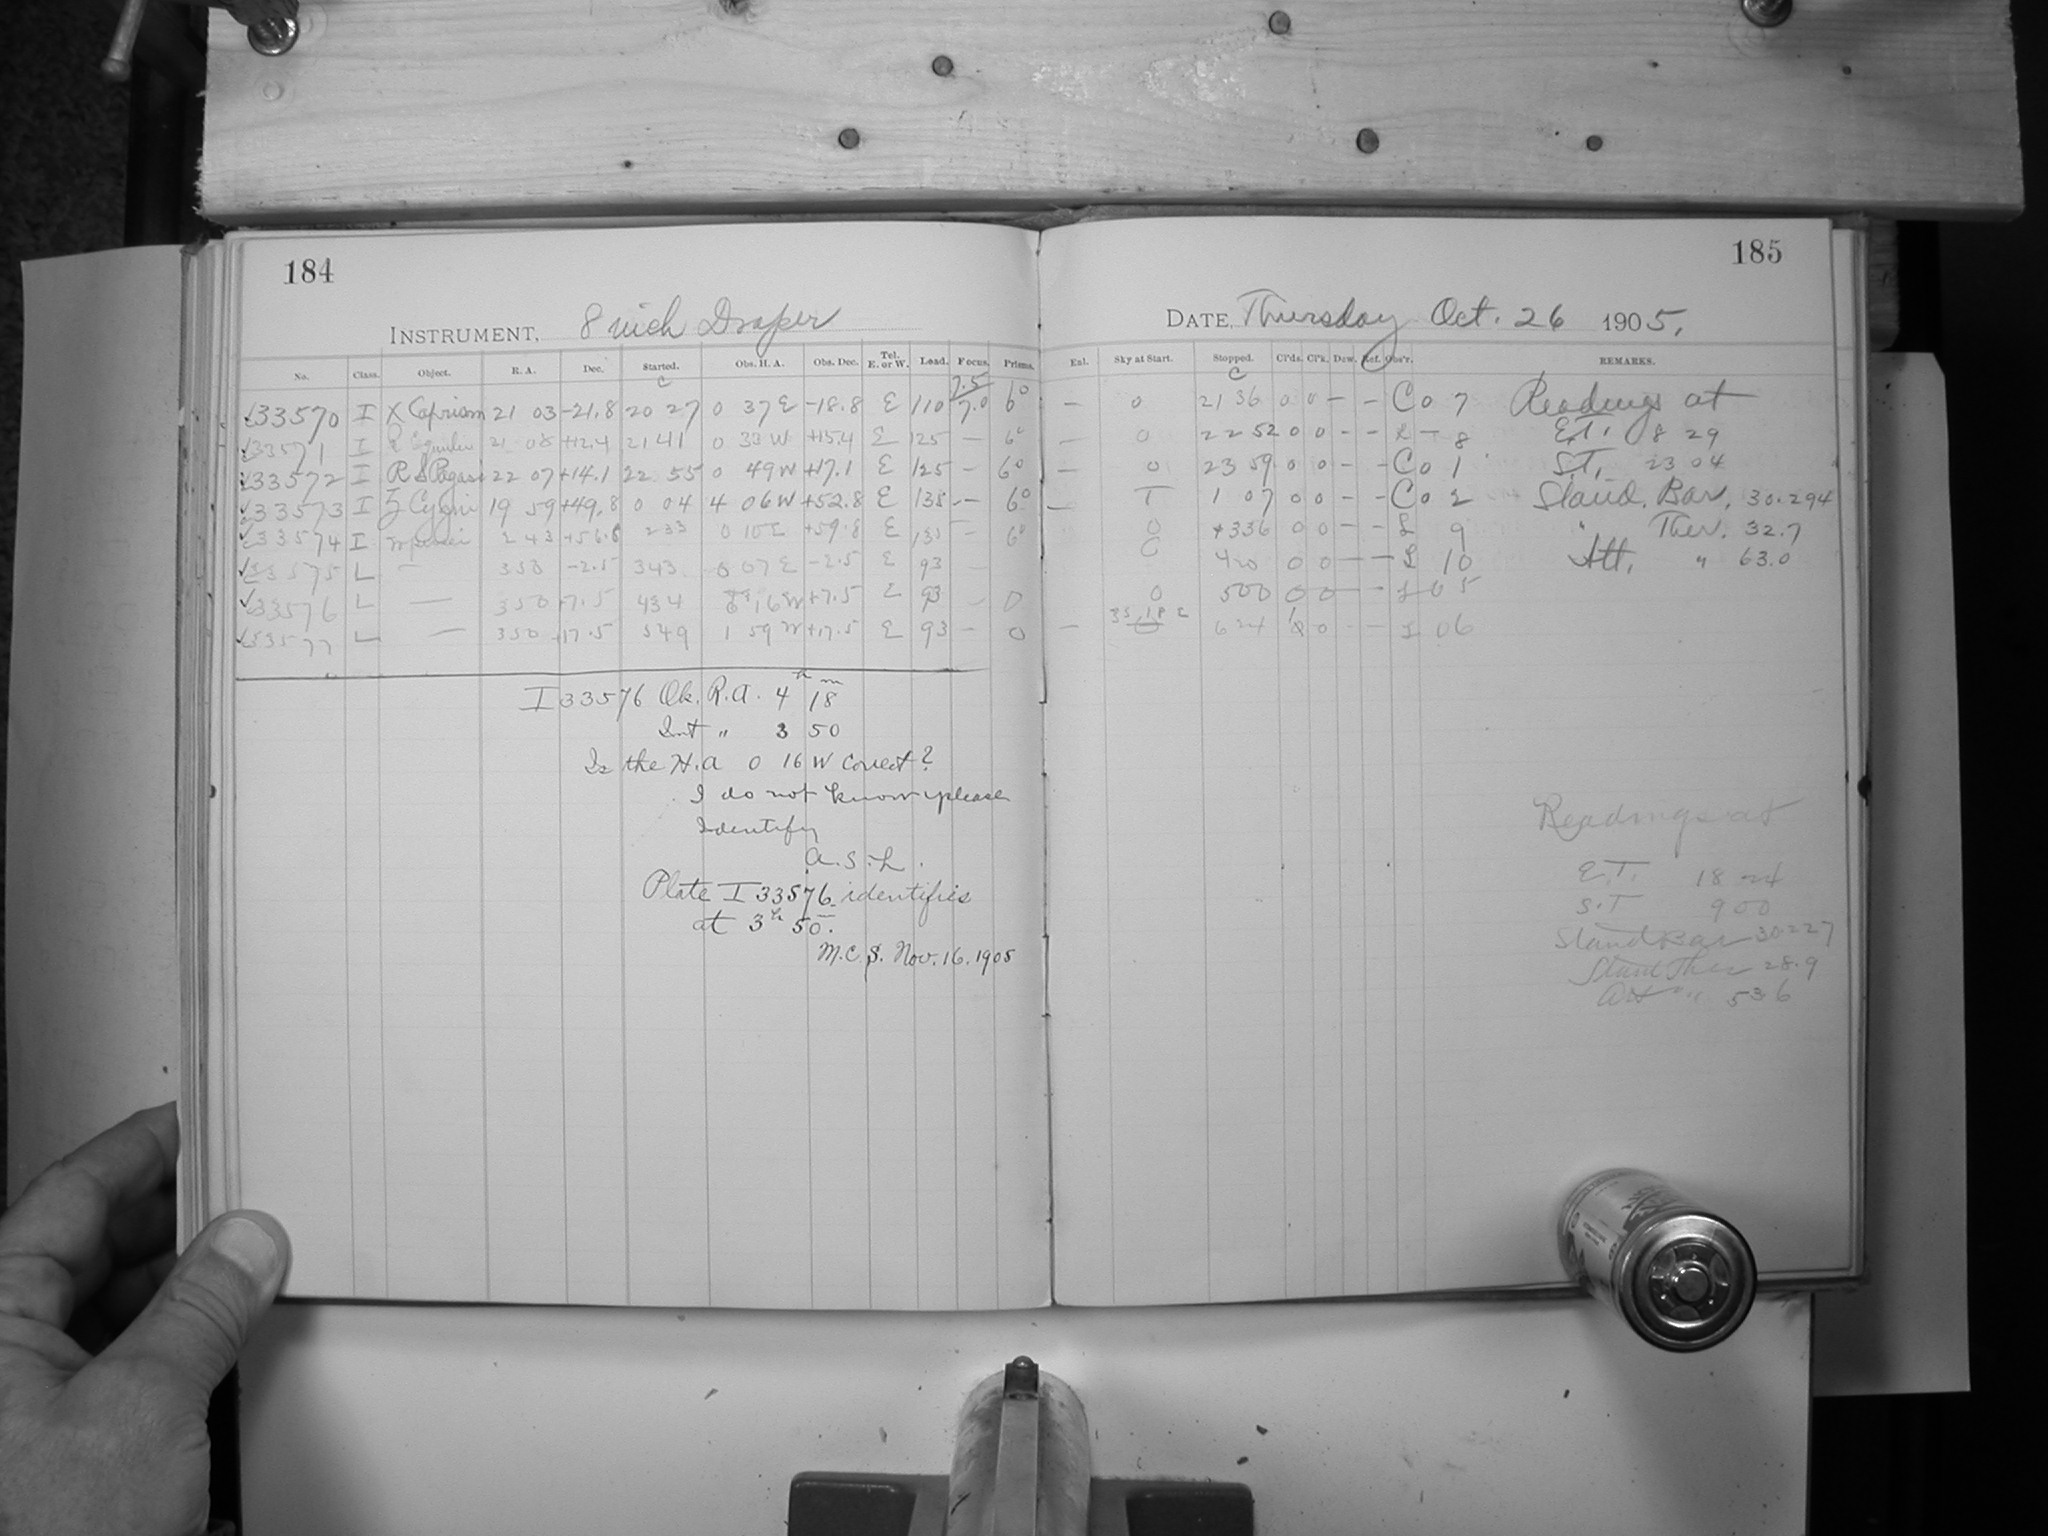 184
INSTRUMENT, 8 inch Draper
No. Class. Object. R. A. Dec. Started. Obs. H. A. Obs. Dec. Tel. E. or W. Load. Focus. Prisms.
C 7.5
33570 I X Capricorn 21 03 -21.8 20 27 0 37 E -18.8 E 110 7.0 6°
33571 I R Equulei 21 08 +12.4 21 41 0 33 W +15.4 E 125 — 6°
33572 I RS Pegasi 22 07 +14.1 22 55 0 49 W +17.1 E 125 — 6°
33573 I Z Cygni 19 59 +49.8 0 04 4 06 W +52.8 E 138 — 6°
33574 I 2 43 +56.5 2 33 0 10 E +59.8 E — 6°
33575 L — 350 -2.5 343 0 07 E -2.5 E 93 —
33576 L — 350 +7.5 434 0 16 W +7.5 E 93 — 0
33577 L — 350 +17.5 549 1 59 W +17.5 E 93 — 0
I 33576 Ok. R.A. 4h 18m
Int " 3 50
Is the H.A 0 16 W correct?
I do not know please
Identify
A.S.L.
Plate I 33576 identifies
at 3h 50m.
M.C.S. Nov. 16. 1905
185
DATE, Thursday Oct. 26 1905.
Enl. Sky at Start. Stopped. Cl'ds. Cl'k. Dew. Ref. Obs'r. REMARKS.
C
— 0 21 36 0 0 — — C 0 7 Readings at
— 0 22 52 0 0 — — L — 8 E.T. 8 29
— 0 23 59 0 0 — — C 0 1 S.T. 23 04
— T 1 07 0 0 — — C 0 2 Stand. Bar. 30.294
0 336 0 0 — — L 9 " Ther. 32.7
0 420 0 0 — — L 10 Att. " 63.0
0 500 0 0 — — L 0 5
— 0 624 0 — — L 06
Readings at
E.T. 18 24
S.T 9 00
Stand Bar 30.227
Stand Ther 28.9
Att " 53.6